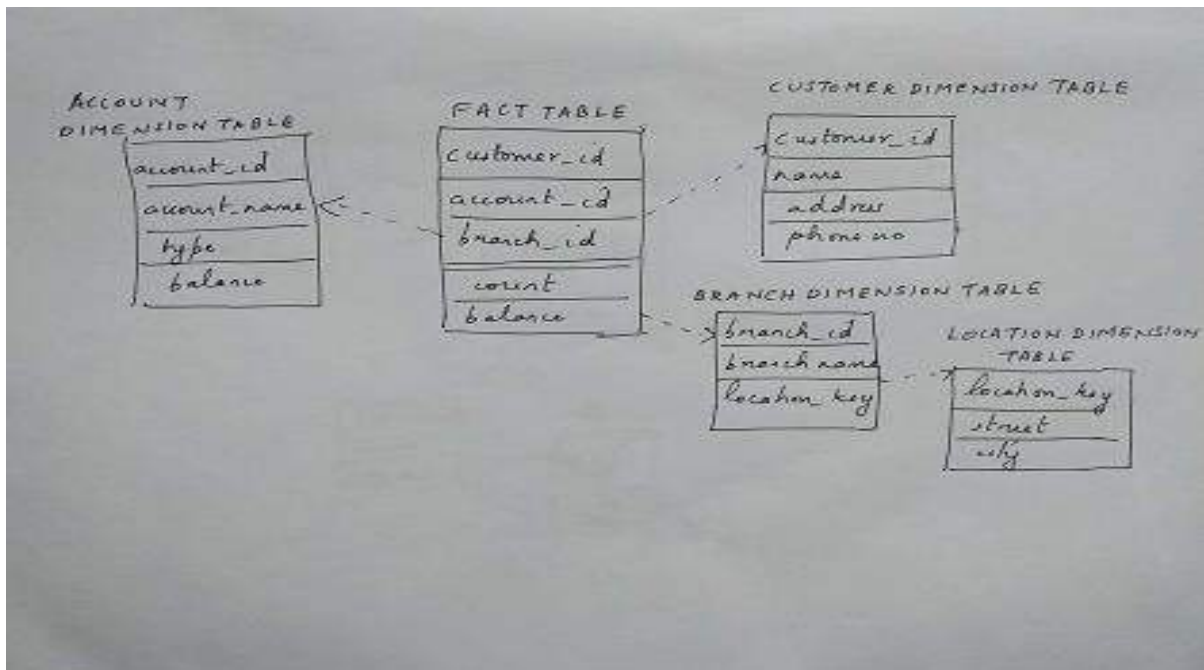 ACCOUNT
DIMENSION TABLE
account_id
account_name
type
balance
FACT TABLE
customer_id
account_id
branch_id
count
balance
CUSTOMER DIMENSION TABLE
customer_id
name
address
phone no
BRANCH DIMENSION TABLE
branch_id
branch name
location_key
LOCATION DIMENSION
TABLE
location_key
street
city